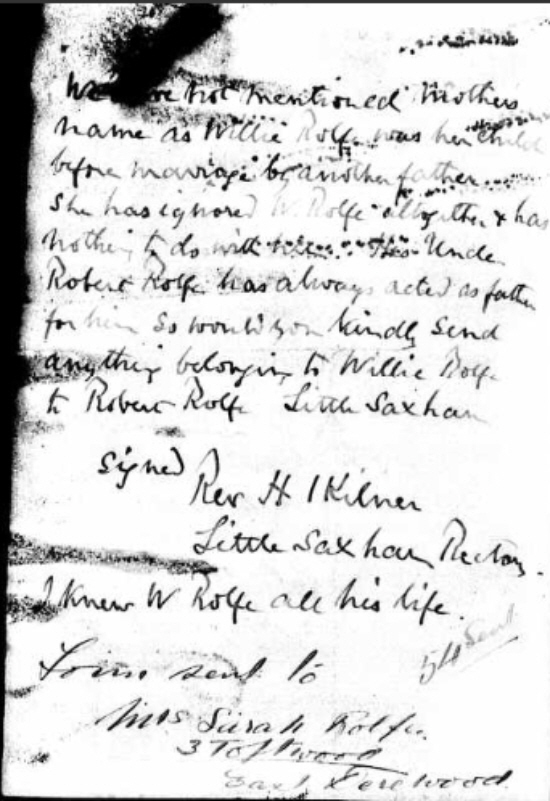 We have not mentioned Mothers
name as Willie Rolfe was her child
before marriage by another father
She has ignored W. Rolfe altogether & has
nothing to do with him. His Uncle
Robert Rolfe has always acted as father
for him So would you kindly Send
anything belonging to Willie Rolfe
to Robert Rolfe Little Saxham
Signed
Rev H I Kilner
Little Saxham Rectory.
I knew W Rolfe all his life.
sent
Form sent to
Mrs Sarah Rolfe.
3 Toftwood
East